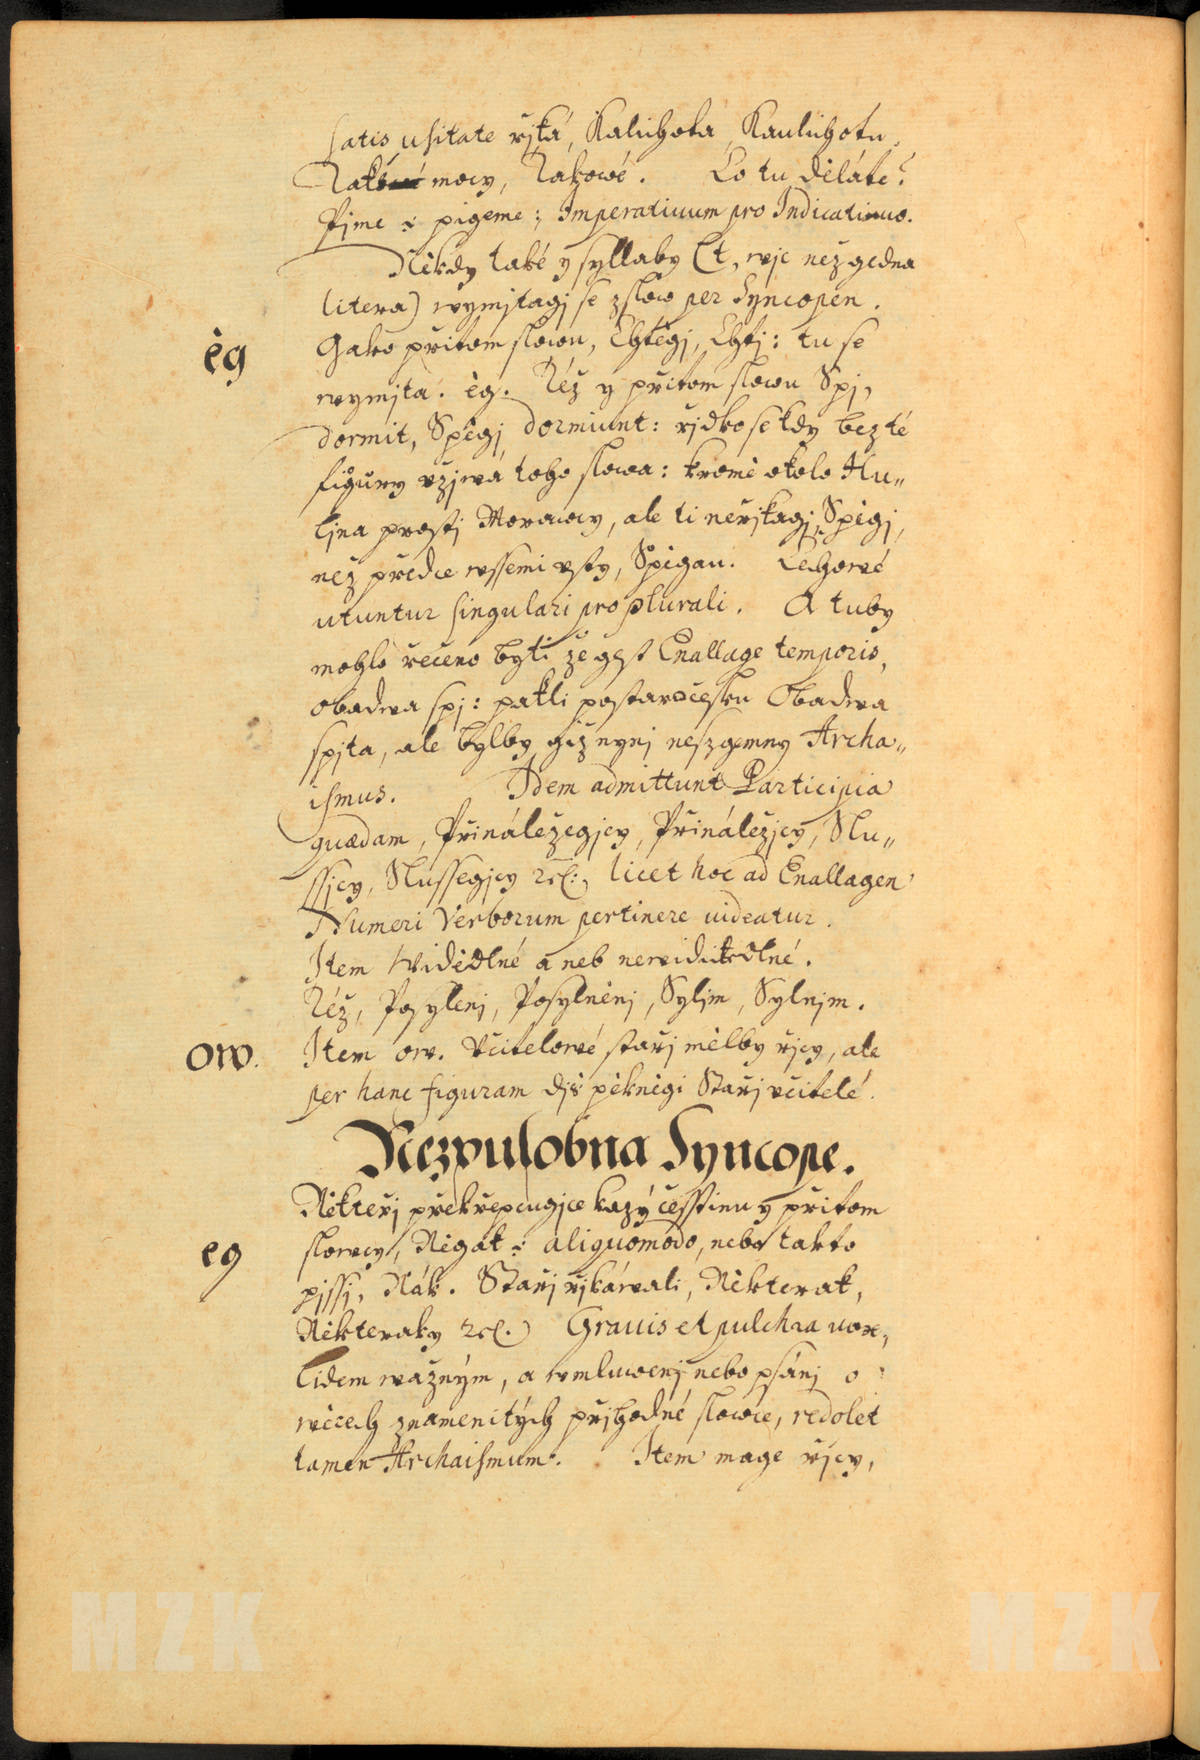 satis usitate řjká, Kalichota, Kaulichotu,
Také mocy, Takowé. Co tu děláte?
Pjme :/: pigeme; Imperatiuum pro Indicatiuo.
Někdy také y syllaby (t, wjc než gedna
litera) wymjtagj se zslow per Syncopen.
ěg
Gako přitom slowu, Chtěgj, Chtj: tu se
wymjta. ěg. Též y přitom slowu Spj,
dormit, Spěgj dormiunt: řjdkose kdy bez té
figůry vžjwá toho slowa: kromě okolo Hu„
ljna prostj Morawcy, ale ti neřjkagj, Spěgj,
než předce wssemi vsty, Spěgau. Čechowé
utuntur singulari pro plurali. A tuby
mohlo řečeno byti že gest Enallage temporis,
obadwa spj: pakli postaročesku Obadwa
spjta, ale bylby giž nynj neszgemny Archa„
ismus. Idem admittunt Participia
quædam, Přináležegjcy, Přináležjcy, Slu„
ssjcy, Slussegjcy ꝛc: licet hoc ad Enallagen
Numeri Verborum pertinere uideatur.
Item Widědlné a neb newiditedlné.
Též, Posylenj, Posylněnj, Syljm, Sylnjm.
ow.
Item ow. Včitelowé stařj mělby řjcy, ale
per hanc figuram djš pěkněgi Stařj včitelé.
Nezpusobna Syncope.
Někteřj překřepcugjce kazý česstinu y přitom
eg
slowcy, Něgak :/: aliquomodo, nebo takto
pjssj, Nák. Stařj řjkáwali, Některak,
Některaky ꝛc.) Grauis et pulchra uox,
lidem wážným, a wmluwenj nebo psánj o
wěcech znamenitých přjhodné slowce, redolet
tamen Archaismum. Item mage řjcy,
MZK
MZK